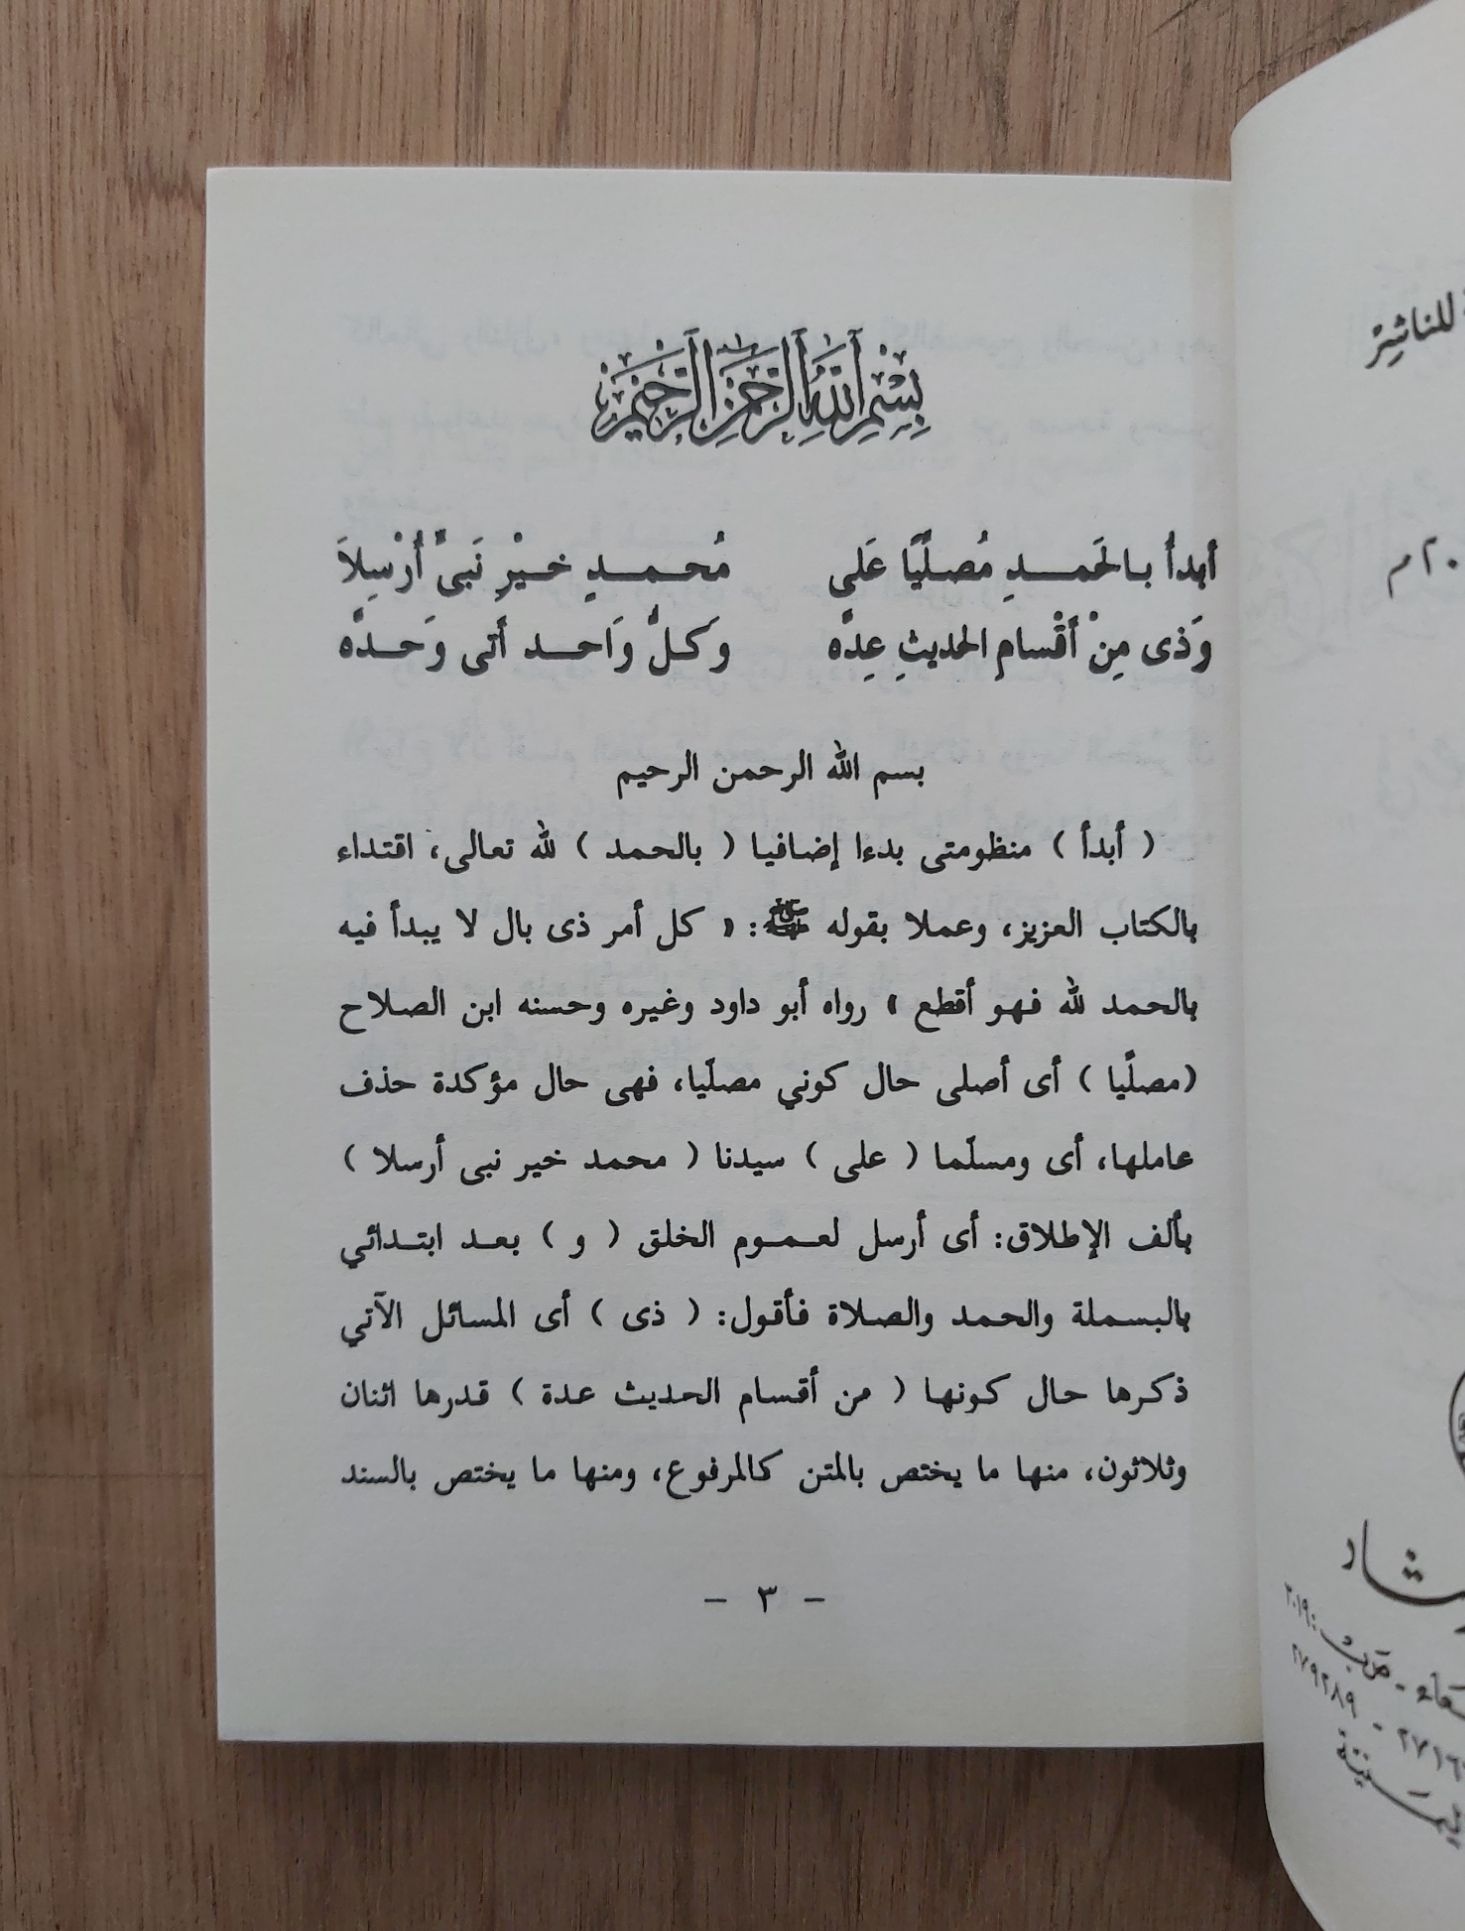 بِسْمِ اللَّهِ الرَّحْمَنِ الرَّحِيمِ
أبدأُ بـالحَمـــدِ مُصـلِّيًا عَلى مُحــمــدٍ خــيْرِ نَبىٍّ أُرْسِلاَ
وَذى مِنْ أَقْسامِ الحديثِ عِدَّه وَكـلُّ وَاحـــد أَتى وَحــدَّه
بسم الله الرحمن الرحيم
( أبدأ ) منظومتى بدءا إضافيا ( بالحمد ) لله تعالى، اقتداء
بالكتاب العزيز، وعملا بقوله ﷺ: « كل أمر ذى بال لا يبدأ فيه
بالحمد لله فهو أقطع » رواه أبو داود وغيره وحسنه ابن الصلاح
(مصلِّيا ) أى أصلى حال كوني مصلّيا، فهى حال مؤكدة حذف
عاملها، أى ومسلّما ( على ) سيدنا ( محمد خير نبى أرسلا )
بألف الإطلاق: أى أرسل لعموم الخلق ( و ) بعد ابتدائي
بالبسملة والحمد والصلاة فأقول: ( ذى ) أى المسائل الآتي
ذكرها حال كونها ( من أقسام الحديث عدة ) قدرها اثنان
وثلاثون، منها ما يختص بالمتن كالمرفوع، ومنها ما يختص بالسند
- ٣ -
للناشِر